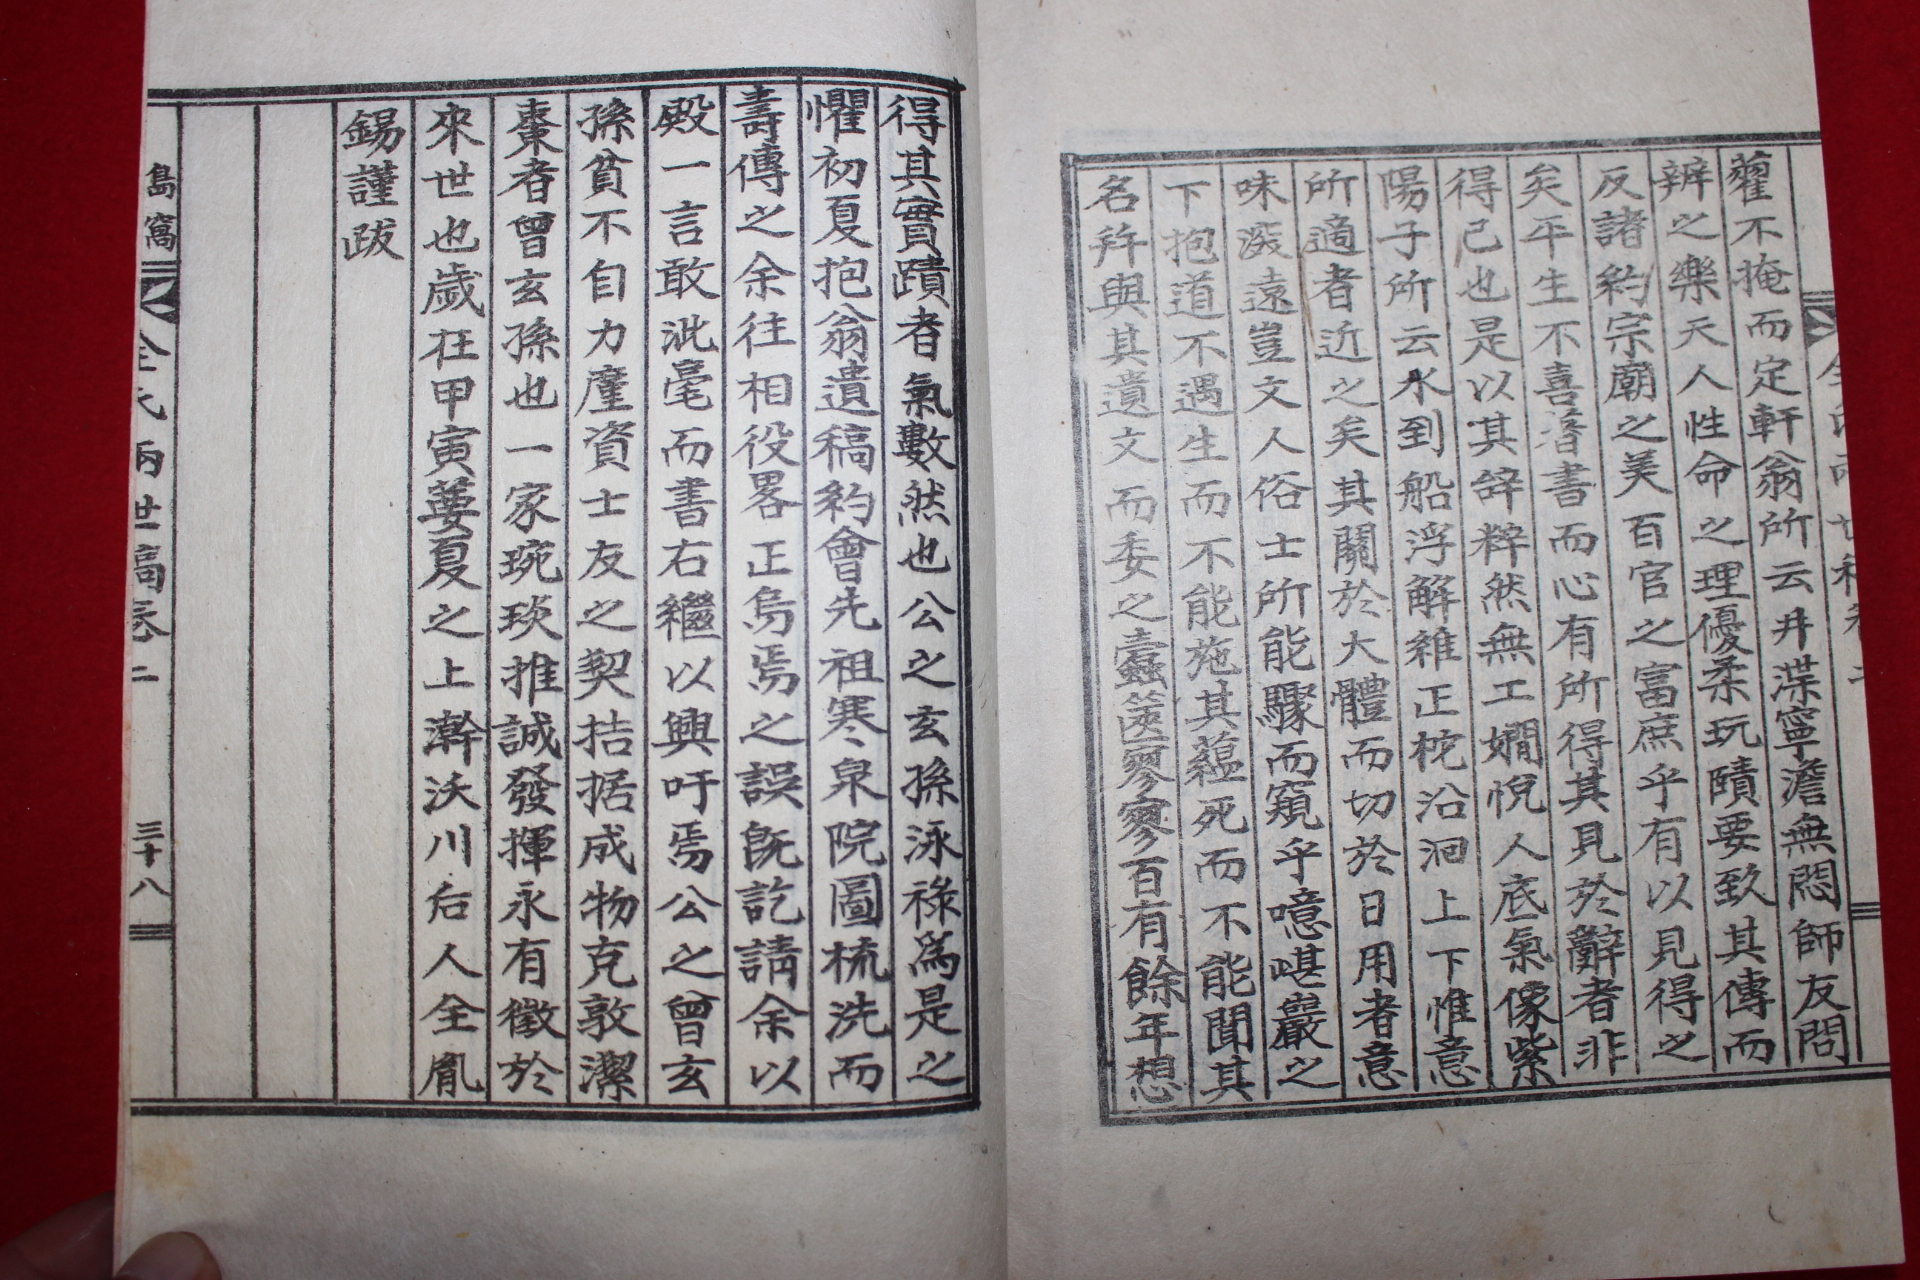 藿不掩而定軒翁所云井渫寧澹無悶師友問
辨之樂天人性命之理優柔玩賾要致其傳而
反諸約宗廟之美百官之富庶乎有以見得之
矣平生不喜著書而心有所得其見於辭者非
得已也是以其辞粹然無工嫺悅人底氣像紫
陽子所云水到船浮解維正柁沿洄上下惟意
所適者近之矣其關於大體而切於日用者意
味淡遠豈文人俗士所能驟而窺乎噫嵁巖之
下抱道不遇生而不能施其蘊死而不能聞其
名幷與其遺文而委之蠹篋寥寥百有餘年想
得其實蹟者氣數然也公之玄孫泳祿爲是之
懼初夏抱翁遺稿約會先祖寒泉院圖梳洗而
壽傳之余往相役畧正烏焉之誤旣訖請余以
殿一言敢泚毫而書右繼以興吁焉公之曾玄
孫貧不自力廑資士友之契拮据成物克敦潔
棗者曾玄孫也一家琬琰推誠發揮永有徵於
來世也歲在甲寅蔞夏之上澣沃川后人全胤
錫謹跋
島窩 全氏兩世稿卷二 三十八